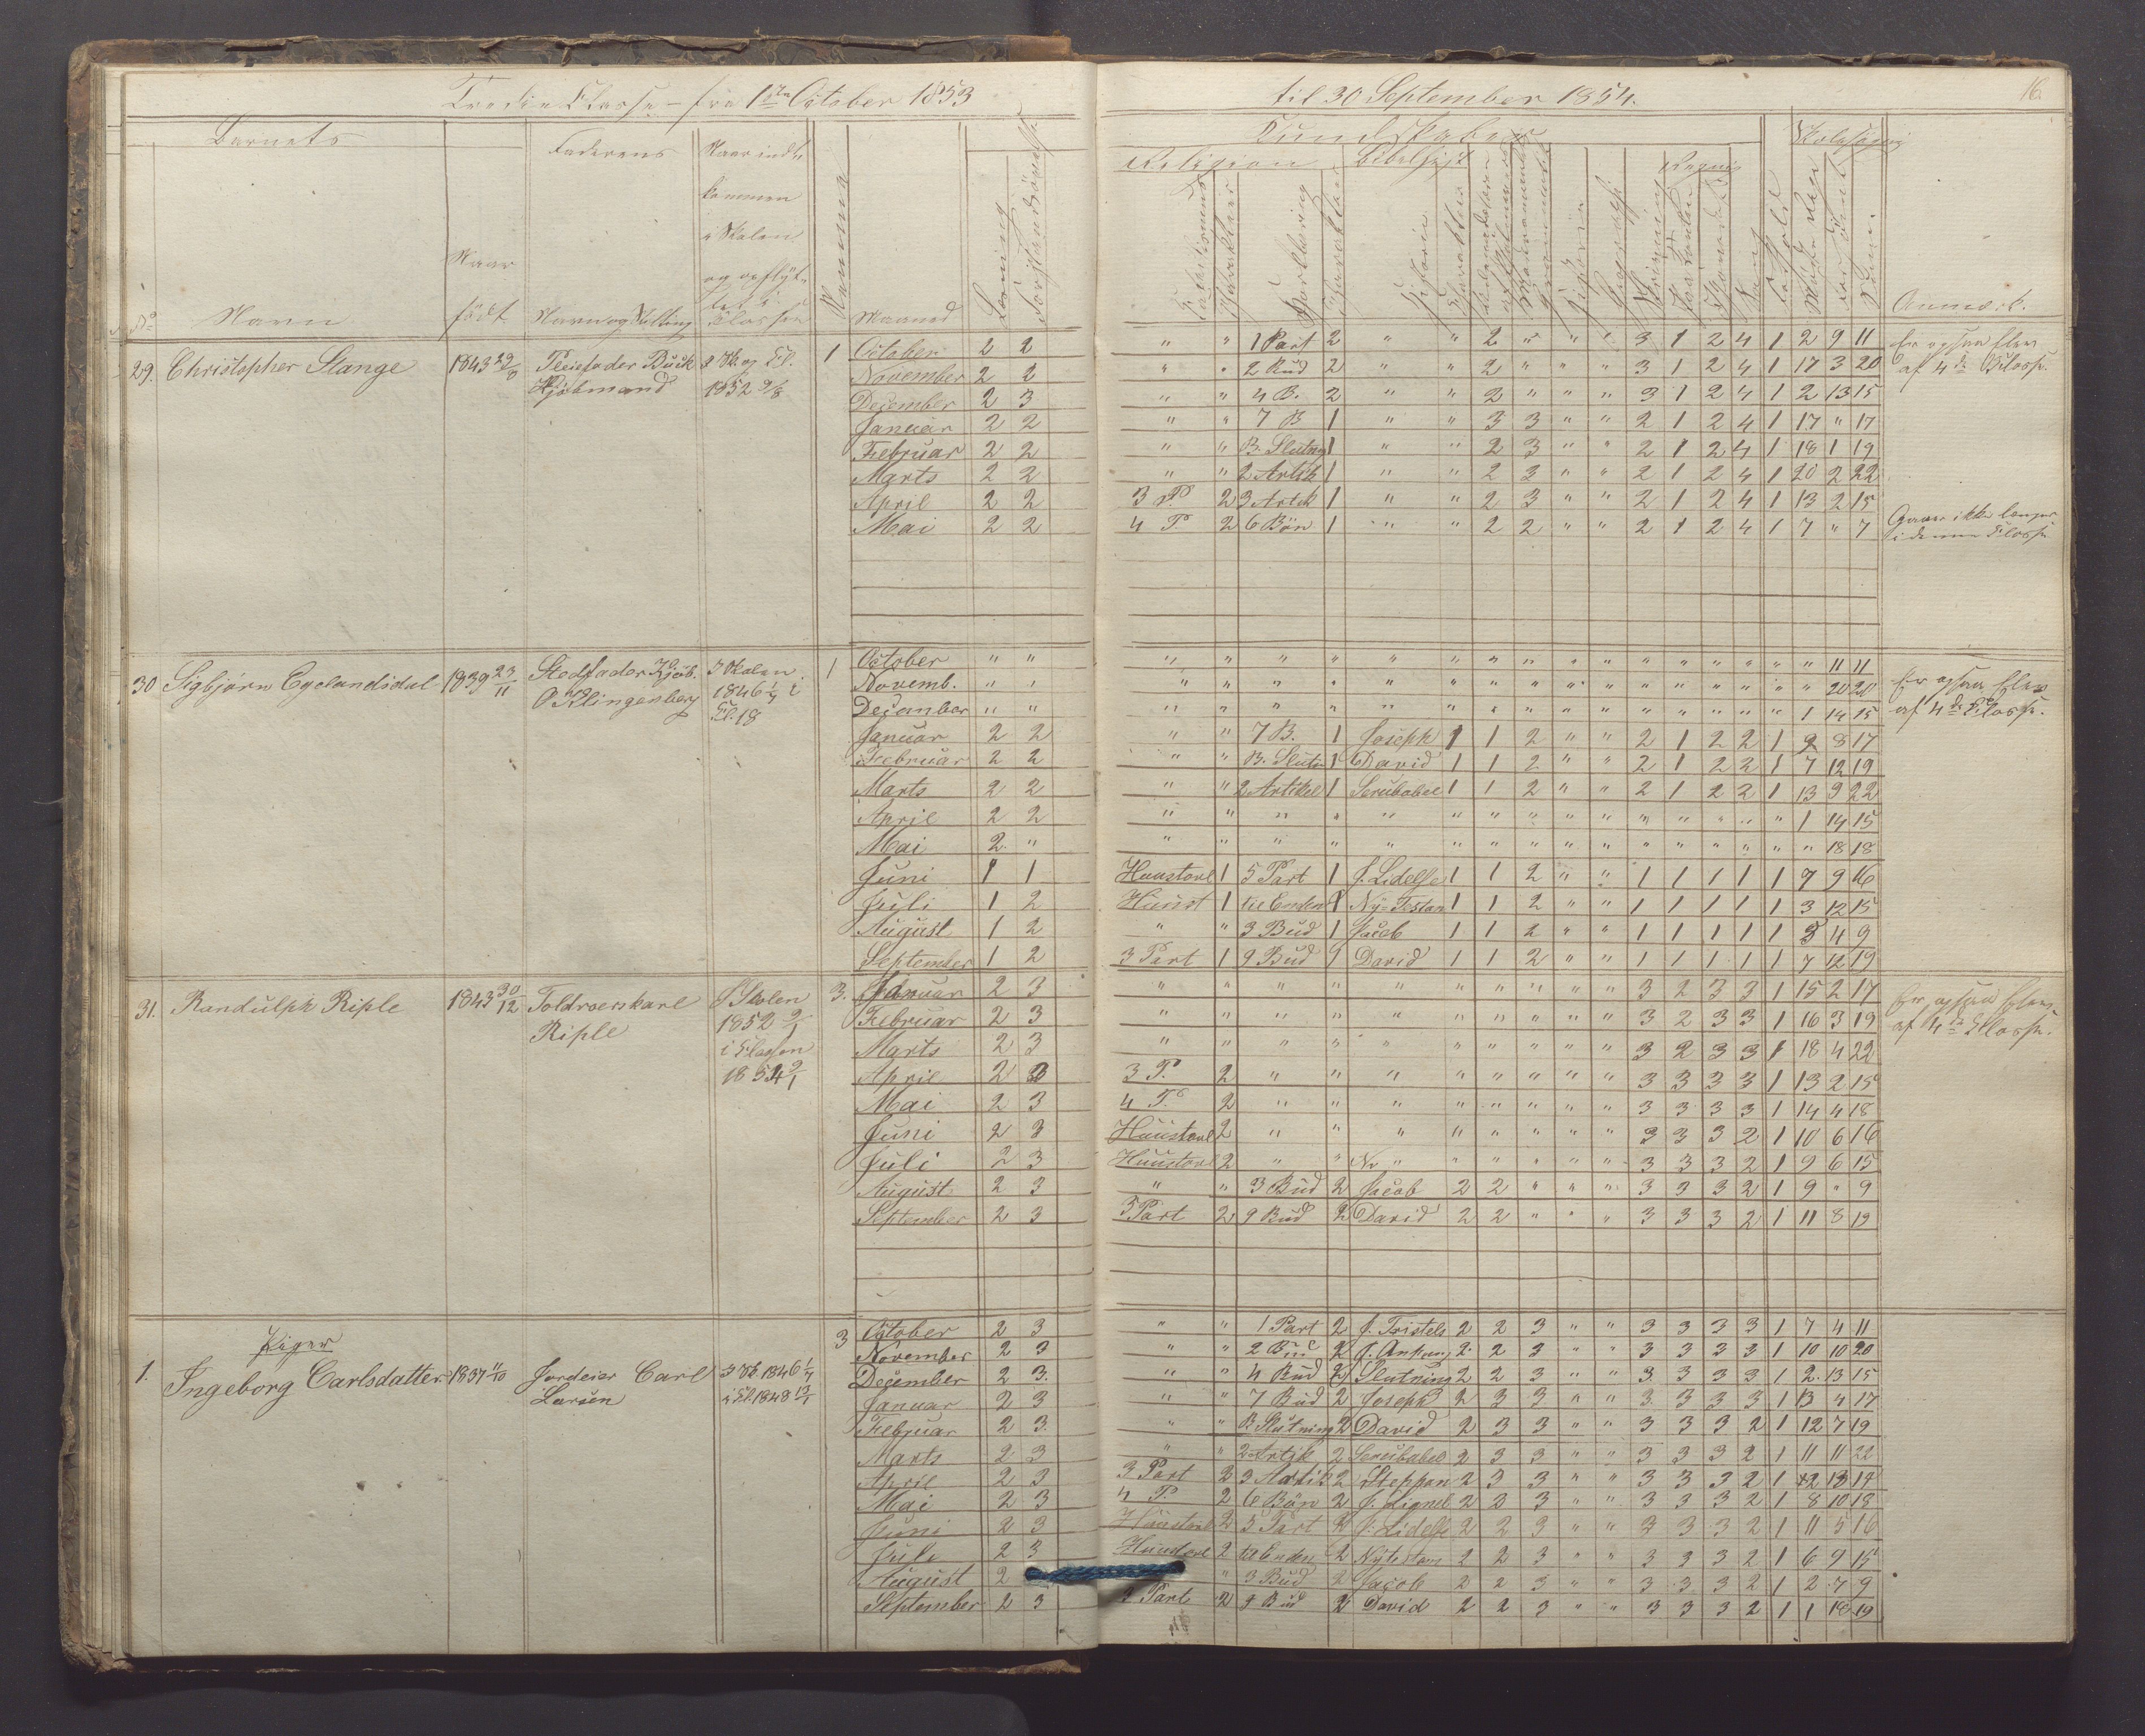 Tredie Classe - fra 1ste October 1853 til 30 September 1854.
16
Barnets
Faderens
Naar indkommen i Skolen og opflyttet i Classen
Kundskaber
Skolesøgn
Religion
Bibelhist
Regning
No
Navn
Naar født
Navn og Stilling
Nummer
Maaned
Læsning
Historie
Skrivning
Anmærk.
29. Christopher Stange 1843 Pleiefader Buck 1 October 2 2 " " 1 Part 2 " " 2 " " " 3 1 2 4 1 2 9 11 Er ogsaa Elev
Kjøbmand 1852 November 2 2 " " 2 Bud 2 " " 2 " " " 3 1 2 4 1 17 3 20 af 4de Classe.
December 2 3 " " 4 B. 2 " " 2 " " " 3 1 2 4 1 2 13 15
Januar 2 2 " " 7 B 1 " " 3 3 " " 2 1 2 4 1 17 " 17
Februar 2 2 " " B. Slutng 1 " " 2 3 " " 2 1 2 4 1 18 1 19
Marts 2 2 " " 2 Artik 1 " " 2 3 " " 2 1 2 4 1 20 2 22
April 2 2 3 P. 2 3 Artik 1 " " 2 3 " " 2 1 2 4 1 13 2 15
Mai 2 2 4 P. 2 6 Bön 1 " " 2 2 " " 2 1 2 4 1 7 " 7 Gaaer ikke længer
i denne Classe
30 Sigbjørn Egelandsdal 1839 23/11 Stedfader Kjöb. I Skolen 1 October " " " " " " " " " " " " " " " " " " 11 11 Er ogsaa Elev
O Klingenberg 1846 Novemb. " " " " " " " " " " " " " " " " " " 20 20 af 4de Classe.
Cl. 18 December " " " " " " " " " " " " " " " " " 1 14 15
Januar 2 2 " " 7 B. 1 Joseph 1 1 2 " " 2 1 2 2 1 9 8 17
Februar 2 2 " " B. Slutn 1 David 1 1 2 " " 2 1 2 2 1 7 12 19
Marts 2 2 " " 2 Artikel 1 Serubabel 1 1 2 " " 2 1 2 2 1 13 9 22
April 2 2 " " " " " " " " " " " " " " " 1 14 15
Mai 2 " " " " " " " " " " " " " " " " " 18 18
Juni 1 1 Huustavl 1 5 Part 1 J. Lidelse 1 1 2 " " 1 1 1 1 1 7 9 16
Juli 1 2 Huust 1 til Enden 1 Ny-Testam 1 1 2 " " 1 1 1 1 1 3 12 15
August 1 2 " " 3 Bud 1 Jacob 1 1 2 " " 1 1 1 1 1 5 4 9
September 1 2 3 Part 1 9 Bud 1 David 1 1 2 " " 1 1 1 1 1 7 12 19
31. Randulph Riple 1843 30/12 Toldroerskarl I Skolen 3. Januar 2 3 " " " " " " " " " " 3 2 3 3 1 15 2 17 Er ogsaa Elev
Riple 1852 9/1 Februar 2 3 " " " " " " " " " " 3 2 3 3 1 16 3 19 af 4de Classe.
i Classen Marts 2 3 " " " " " " " " " " 3 2 3 3 1 18 4 22
1854 9/1 April 2 3 3 P. 2 " " " " " " " " 3 3 3 3 1 13 2 15
Mai 2 3 4 P. 2 " " " " " " " " 3 3 3 3 1 14 4 18
Juni 2 3 Huustavl 2 " " " " " " " " 3 3 3 2 1 10 6 16
Juli 2 3 Huustavl 2 " " " " " " " 3 3 3 2 1 9 6 15
August 2 3 " " 3 Bud 2 Jacob 2 2 " " " 3 3 3 2 1 9 " 9
September 2 3 3 Part 2 9 Bud 2 David 2 2 " " " 3 3 3 2 1 11 8 19
Piger
1. Ingeborg Carlsdatter 1837 11/10 Jordeier Carl I Sk. 1846 3 October 2 3 " " 1 Part 2 J. Fristels 2 2 3 " " 3 3 3 3 1 7 4 11
Larsen i Cl. 1848 November 2 3 " " 2 Bud 2 2 2 3 " " 3 3 3 3 1 10 10 20
December 2 3 " " 4 Bud 2 Slutning 2 2 3 " " 3 3 3 3 1 2 13 15
Januar 2 3 " " 7 Bud 2 Joseph 2 3 3 " " 3 3 3 3 1 13 4 17
Februar 2 3 " " B. Slutning 2 David 2 3 3 " " 3 3 3 2 1 12 7 19
Marts 2 3 " " 2 Artik 2 Serubabel 2 3 3 " " 3 3 3 2 1 11 11 22
April 2 3 3 Part 2 3 Artik 2 Stephan 2 3 3 " " 3 3 3 2 1
Mai 2 3 4 P. 2 6 Bön 2 J. Lignel 2 3 3 " " 3 3 3 2 1 8 10 18
Juni 2 3 Huustavl 2 5 Part 2 J. Lidelse 2 2 3 " " 3 3 3 2 1 11 5 16
Juli 2 3 Huustavl 2 til Enden 2 Nytestam 2 2 3 " " 3 3 3 2 1 6 9 15
August 2 " 3 Bud 2 Jacob 2 2 3 " " 3 3 3 2 1 2 7 9
September 2 3 3 Part 2 9 Bud 2 David 2 2 3 " " 3 3 3 2 1 1 18 19